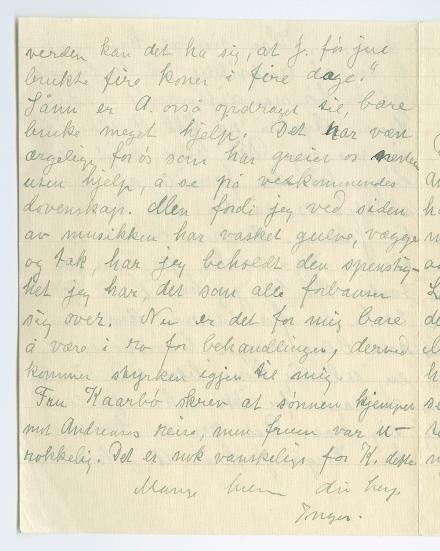 verden kan det ha sig, at J. før jul
brukte fire koner i fire dage."
Sånn er A. også opdraget til, bare
bruke meget hjelp. Det har vært
ærgelig for os som har greiet os nesten
uten hjelp, å se på vedkommendes
dovenskap. Men fordi jeg ved siden
av musikken har vasket gulve, vægge
og tak, har jeg beholdt den spenstig-
het jeg har, det som alle forbauser
sig over. Nu er det for mig bare
å være i ro for behandlingen, derved
kommer styrken igjen til mig.
Fru Kaarbö skrev at sønnen kjemper
mot Andreas reise, men fruen var u-
rokkelig. Det er nok vanskelig for K. dette.
Mange din
Inger.